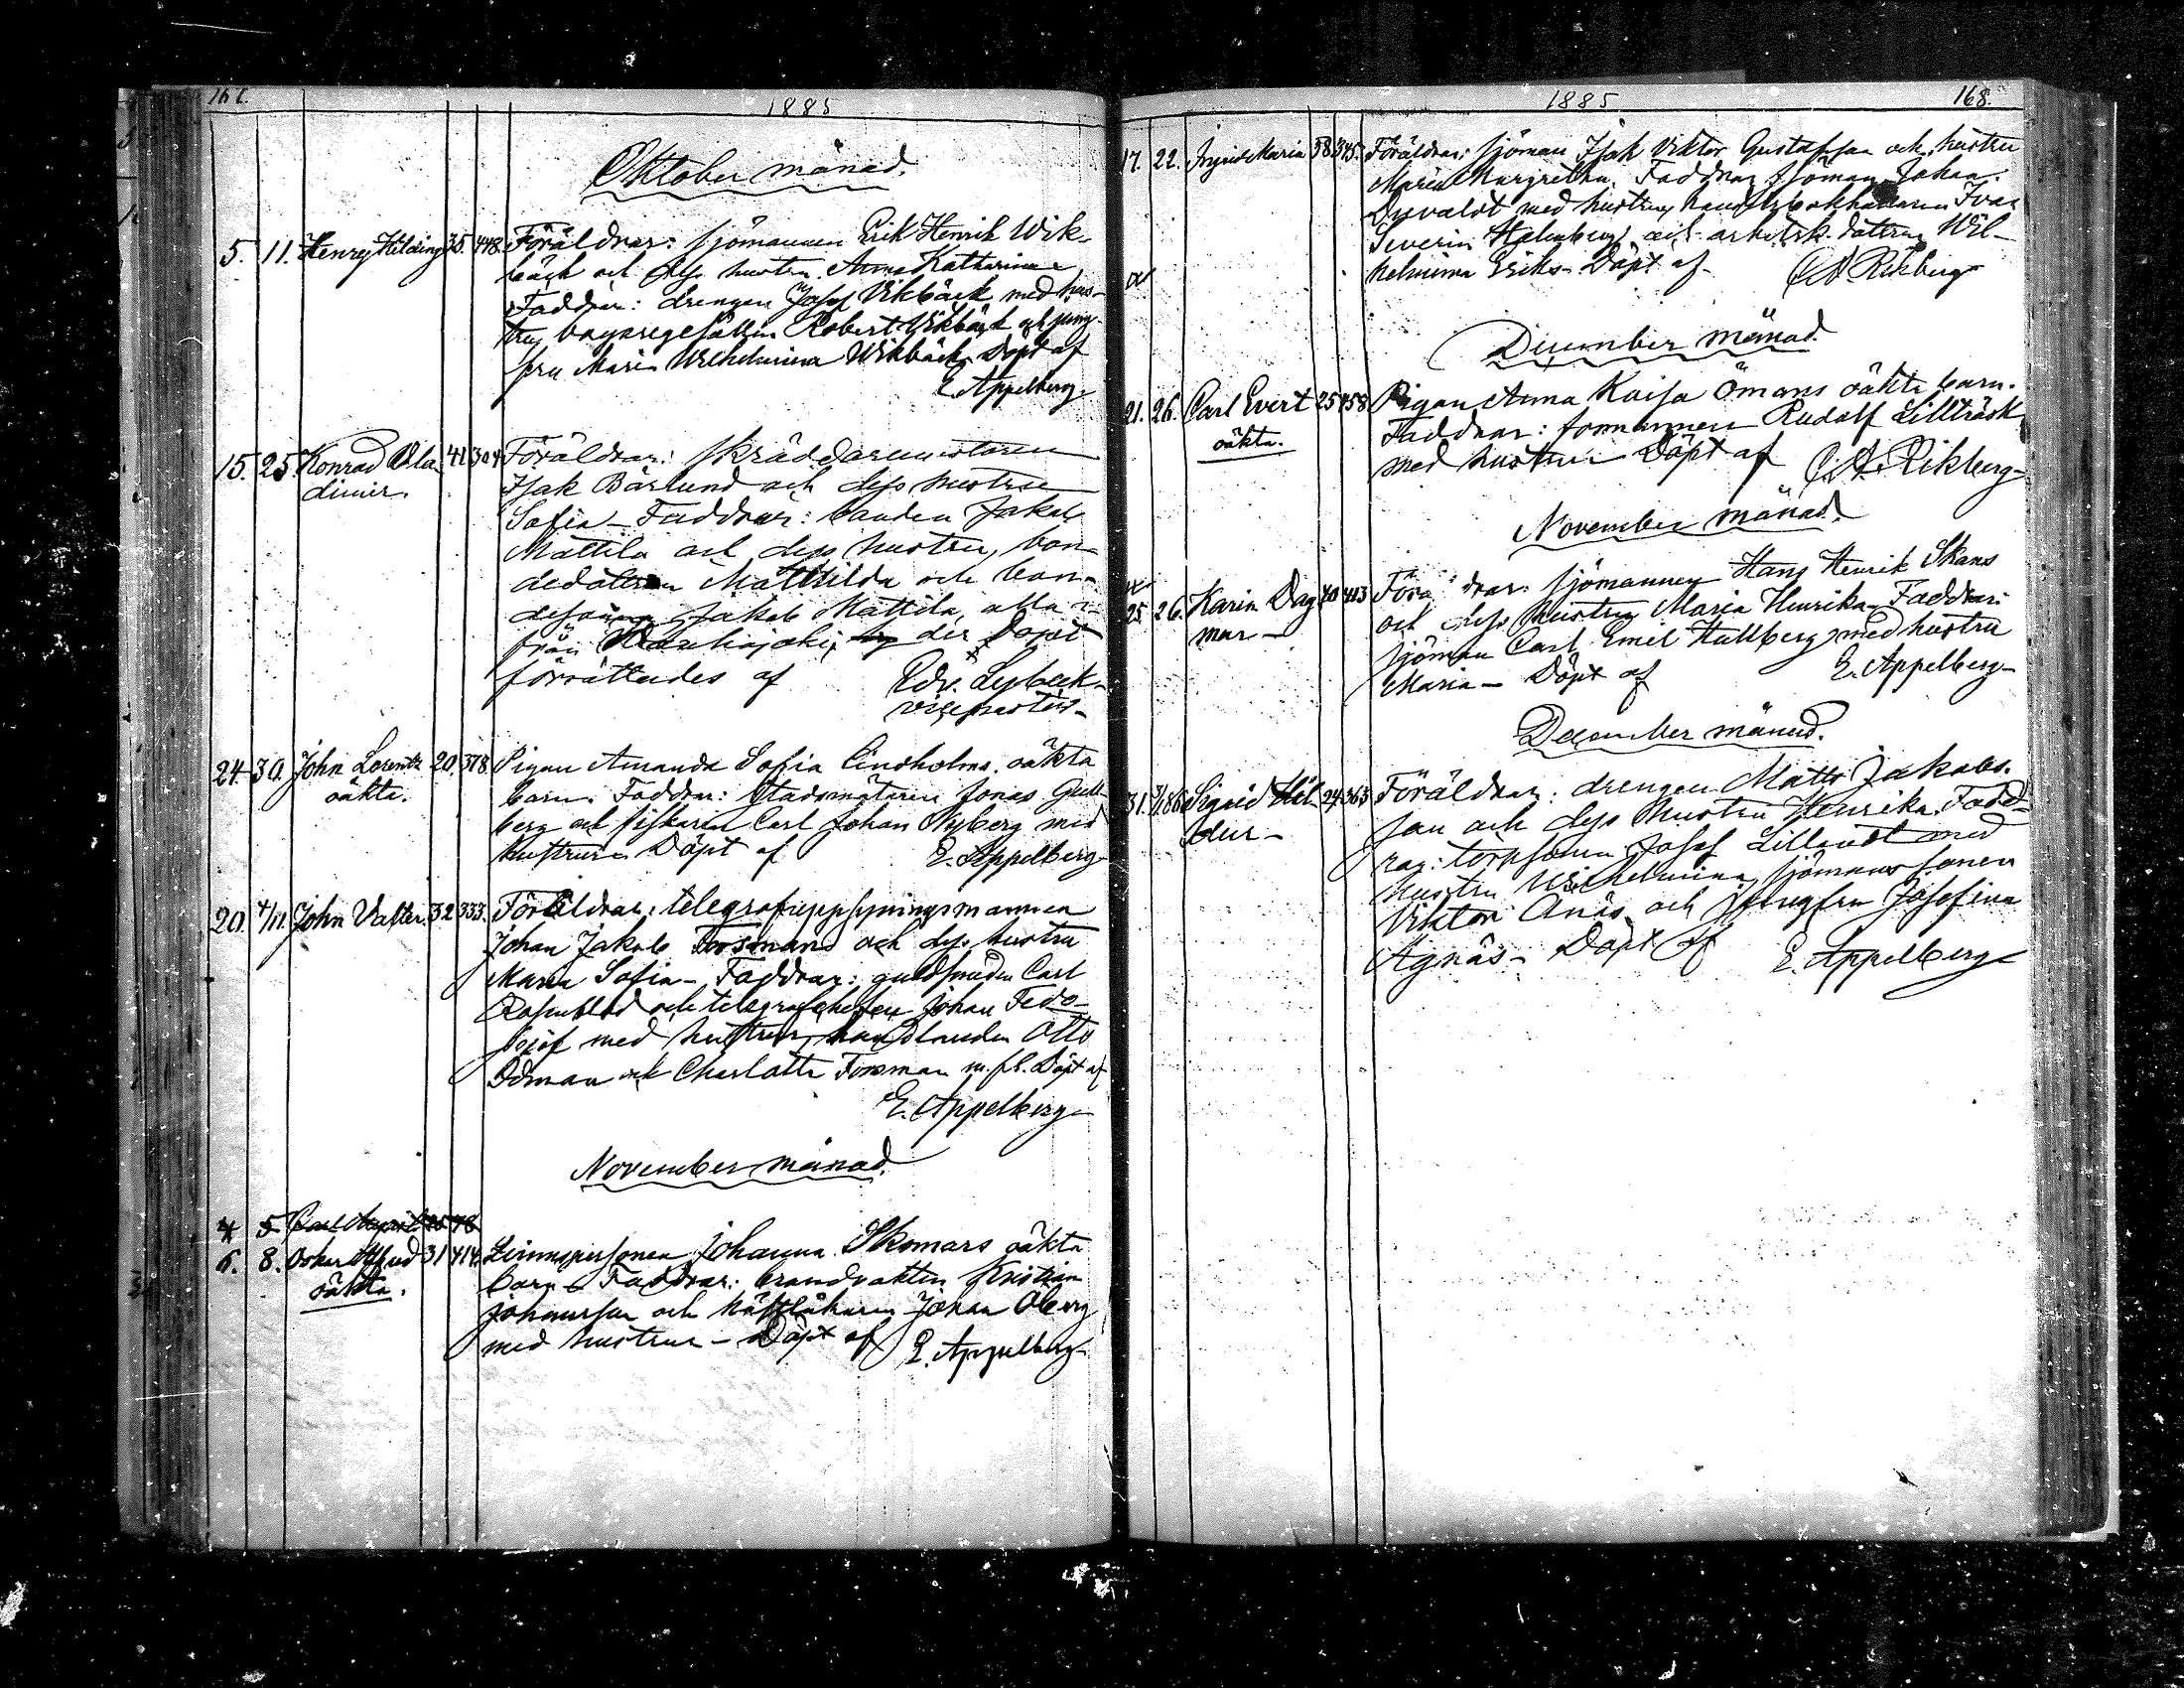 1885
Oktober månad.
5. 11. Henry Hilding 35. 448. Föräldrar: sjömannen Erik Henrik Wik-
bäck och dess hustru Anna Katharina
Faddrar: drengen Josef Vikbäck med hus-
tru, bagaregesällen Robert Wikbäck och jung-
fru Maria Wilhelmina Wikbäck. Döpt af
E. Appelberg
15. 25. Konrad Vla- 41 304 Föräldrar: skräddaremästaren
dimir. Isak Bärlund och dess hustru
Sofia – Faddrar: bonden Jakob
Mattila och dess hustru, bon-
dedottren Matthilda och bon-
desonen Jakob Mattila, alla i-
från der Dopet
förrättades af Edv. Lybeck
vicepastor
24. 30. John Lorentz 20. 378. Pigan Amanda Sofia Lindholms oäkta
oäkta. barn. Faddrar: Stadsmätaren Jonas Gull-
berg och fiskaren Carl Johan Nyberg med
hustrur. Döpt af E. Appelberg
20. 4/11. John Valter. 32. 333. Föräldrar: telegrafuppsyningsmannen
Johan Jakob Forsman och dess hustru
Maria Sofia – Faddrar: guldsmeden Carl
Rosenblad och telegrafchefen Johan Fedo-
med hustrur, handlanden Otto
Ödman och Charlotta Forsman m. fl. Döpt af
E. Appelberg
November månad.
4. 5. Carl
6. 8. Oskar Alfred 31 414. Tjenstpersonen Johanna Skomars oäkta
oäkta. barn – Faddrar: brandvakten Kristian
Johansson och Johan Öberg
med hustrur – Döpt af E. Appelberg
1885 168.
17. 22. Ingrid Maria 38 345. Föräldrar: sjöman Isak Viktor Gustafsson och hustru
Maria Margretha. Faddrar sjöman Johan
med hustru, handelsbokhållaren Ivar
Severin Holmberg och arbetsk. dottren Wil-
helmina Eriks – Döpt af Rikberg
December månad.
21. 26. Carl Evert 25 458 Pigan Anna Kaisa Ömans oäkta barn.
oäkta. Faddrar: formannen Rudolf Lillträsk
med hustru Döpt af Rikberg
November månad.
25 26. Karin Dag- 40 413 Föräldrar: sjömannen Hans Henrik Skans
mar – och dess hustru Maria Henrika – Faddrar:
sjöman Carl Emil Hallberg med hustru
Maria – Döpt af E. Appelberg
December månad.
31. Sigrid Hil- 24 363 Föräldrar: drengen Matts Jakobs-
dur – son och dess hustru Henrika. Fadd-
rar: torpsonen Josef Lillqvist med
hustru Wilhelmina, sjömans sonen
Viktor Enäs och jungfru Josefina
Agnäs – Döpt af E. Appelberg